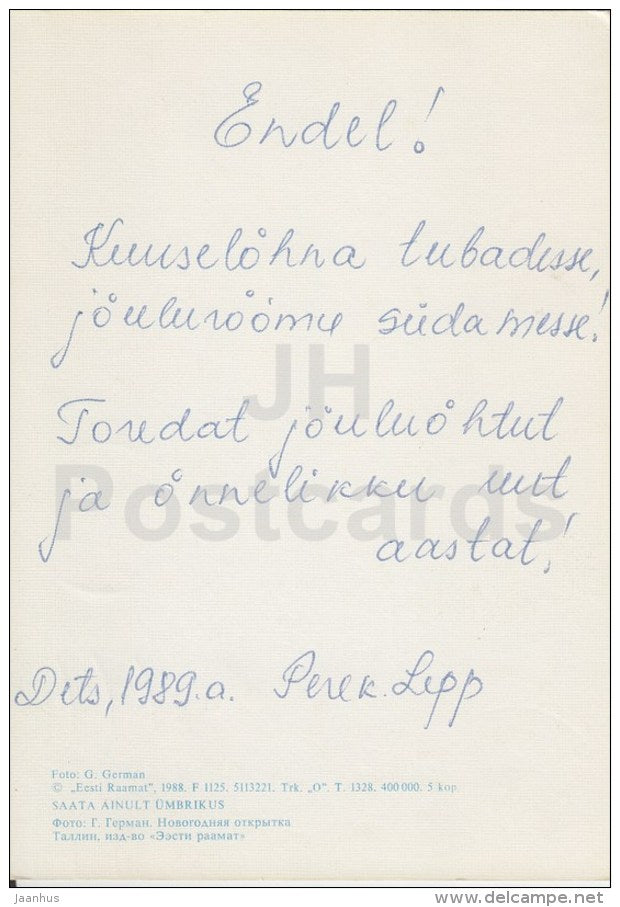 Endel!
Kuuselõhna tubadesse,
jõulurõõmu südamesse!
Toredat jõuluõhtut
ja õnnelikku uut
aastat!
Dets, 1989.a. Perek. Lepp
JH
Postcards
Foto: G. German
© „Eesti Raamat", 1988. F 1125. 5113221. Trk. „O". T. 1328. 400 000. 5 kop.
SAATA AINULT ÜMBRIKUS
Фото: Г. Герман. Новогодняя открытка
Таллин, изд-во «Ээсти раамат»
jaanhus
www.delcampe.net